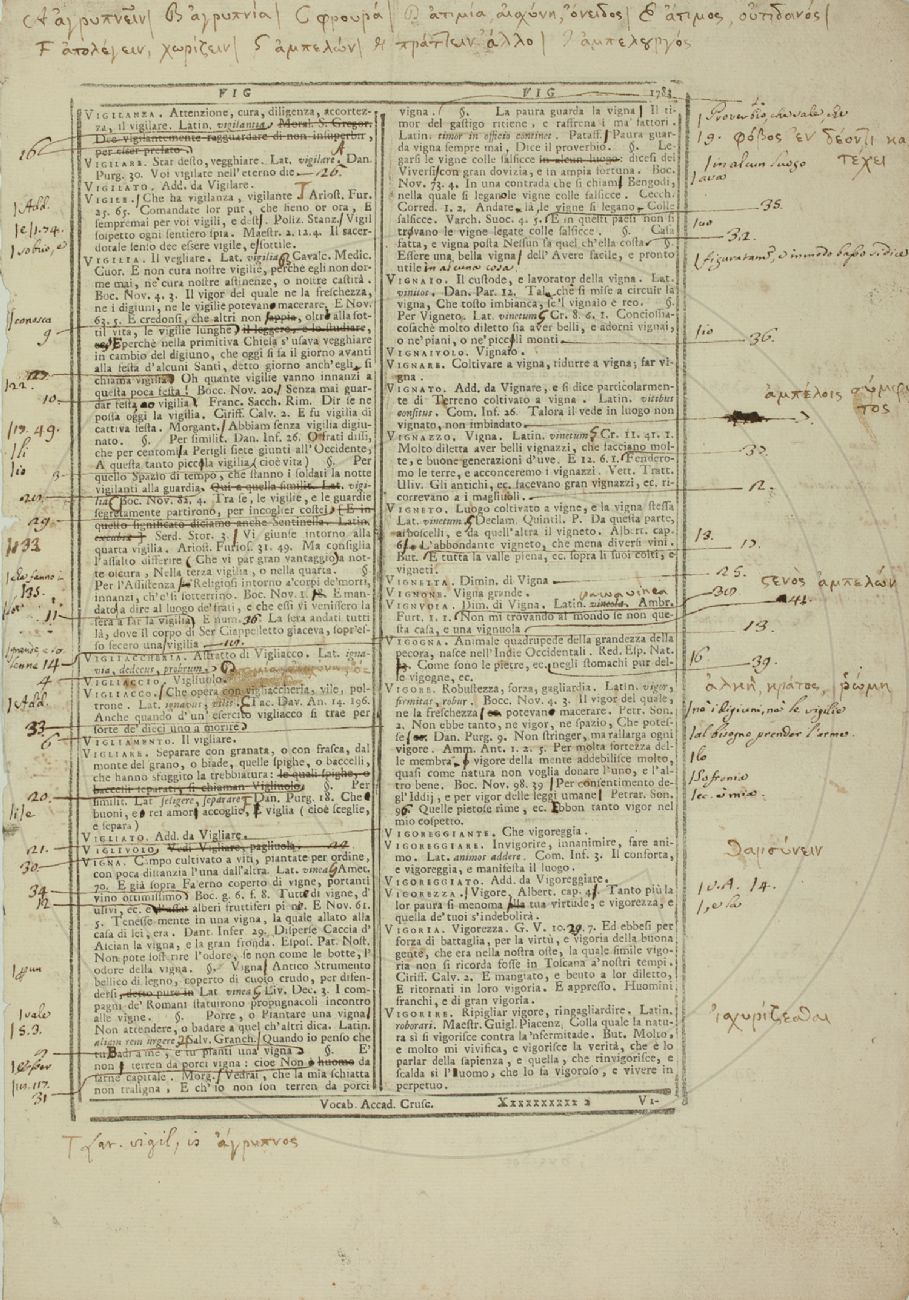 A ἀγρυπνεῖν| B ἀγρυπνία| C φρουρά| D ἀτιμία, αἰσχύνη, ὄνειδος| E ἄτιμος, οὐτιδανός|
F ἀπολέγειν, χωρίζειν| G ἀμπελών| H πράττειν ἄλλο| I ἀμπελουργός
VIG
VIG 1783
VIGILANZA. Attenzione, cura, diligenza, accortez-
za, il vigilare. Latin. vigilantia. Moral. S. Gregor.
Dee vigilantemente ragguardare di non insuperbir,
per esser prelato
VIGILARE. Star desto, vegghiare. Lat. vigilare. Dan.
Purg. 30. Voi vigilate nell'eterno die. 26.
VIGILATO. Add. da Vigilare.
VIGILE. Che ha vigilanza, vigilante Ariost. Fur.
25. 65. Comandate lor può, che fieno or ora, E
sempremai per voi vigili, e desti. Poliz. Stanz. Vigil
sospetto ogni sentiero spia. Maestr. 2. 12. 4. Il sacer-
dotale senso dee essere vigile, e sottile.
VIGILIA. Il vegliare. Lat. vigilia Cavalc. Medic.
Cuor. E non cura nostre vigilie, perchè egli non dor-
me mai, nè cura nostre astinenze, o nostre castità.
Boc. Nov. 4. 3. Il vigor del quale ne la freschezza,
ne i digiuni, ne le vigilie potevan macerare. E Nov.
63. 5. E credonsi, che altri non sappia, oltre alla sot-
til vita, le vigilie lunghe il leggere, e lo studiare,
ec. E perchè nella primitiva Chiesa s'usava vegghiare
in cambio del digiuno, che oggi si fa il giorno avanti
alla festa d'alcuni Santi, detto giorno anch'egli si
chiama vigilia Oh quante vigilie vanno innanzi a
questa poca festa! Bocc. Nov. 20. Senza mai guar-
dar festa o vigilia Franc. Sacch. Rim. Dir se ne
possa oggi la vigilia. Ciriff. Calv. 2. E fu vigilia di
cattiva festa. Morgant. Abbiam senza vigilia digiu-
nato. §. Per similit. Dan. Inf. 26. O frati dissi,
che per centomila Perigli siete giunti all'Occidente,
A questa tanto picciola vigilia (cioè vita) §. Per
quello Spazio di tempo, che stanno i soldati la notte
vigilanti alla guardia. Qui a quella similit. Lat. vigi-
lia Boc. Nov. 82. 4. Tra se, le vigilie, e le guardie
segretamente partirono, per incoglier costei E in
questo significato diciamo anche Sentinella. Latin.
excubia Serd. Stor. 3. Vi giunse intorno alla
quarta vigilia. Ariost. Furios. 31. 49. Ma consiglia
l'assalto differire (Che vi par gran vantaggio) a not-
te oscura, Nella terza vigilia, o nella quarta. §
Per l'Assistenza Religiosi intorno a'corpi de'morti,
innanzi, ch'e'si sotterrino. Boc. Nov. 1. 8. E man-
dato a dire al luogo de'frati, e che essi vi venissero la
sera a far la vigilia E num. 36. La sera andati tutti
là, dove il corpo di Ser Ciappelletto giaceva, sopr'es-
so fecero una vigilia 19.
VIGLIACCHERIA. Astratto di Vigliacco. Lat. igna-
via, dedecus, probrum.
VIGLIACCIO. Vigliuolo
VIGLIACCO. Che opera con vigliaccheria, vile, pol-
trone. Lat. ignavus, vilis. Tac. Dav. An. 14. 196.
Anche quando d'un' esercito vigliacco si trae per
sorte de'dieci uno a morire
VIGLIAMENTO. Il vigliare.
VIGLIARE. Separare con granata, o con frasca, dal
monte del grano, o biade, quelle spighe, o baccelli,
che hanno sfuggito la trebbiatura: le quali spighe, o
baccelli separati, si chiaman Vigliuolo §. Per
similit. Lat. seligere, separare Dan. Purg. 18. Che
buoni, e rei amori accoglie, E viglia (cioè sceglie,
e separa)
VIGLIATO. Add. da Vigliare.
VIGLIUOLO. Vedi Vigliare, pagliuola.
VIGNA. Campo cultivato a viti, piantate per ordine,
con poca distanzia l'una dall'altra. Lat. vinea Amet.
70. E già sopra Falerno coperto di vigne, portanti
vino ottimissimo Boc. g. 6. f. 8. Tutti di vigne, d'
ulivi, ec. alberi fruttiferi pieni. E Nov. 61.
5. Tenesse mente in una vigna, la quale allato alla
casa di lei, era. Dant. Infer 29. Disperse Caccia d'
Ascian la vigna, e la gran fronda. Espos. Pat. Nost.
Non pote sostenere l'odore, se non come le botte, l'
odore della vigna. §. Vigna Antico Strumento
bellico di legno, coperto di cuoio crudo, per difen-
dersi, detto pure in Lat. vinea Liv. Dec. 3. I com-
pagni de'Romani statuirono propugnacoli incontro
alle vigne. §. Porre, o Piantare una vigna
Non attendere, o badare a quel ch'altri dica. Latin.
aliam rem urgere Salv. Granch. Quando io penso che
tu Badi a me, e tu pianti una vigna §. E'
non terren da porci vigna: cioè Non huomo da
farne capitale. Morg. Vedrai, che la mia schiatta
non traligna, E ch'io non son terren da porci
vigna. §. La paura guarda la vigna Il ti-
mor del gastigo ritiene, e raffrena i ma' fattori.
Latin. timor in officio continet. Pataff. Paura guar-
da vigna sempre mai, Dice il proverbio. §. Le-
garsi le vigne colle salsicce in alcun luogo: dicesi del
Viversi con gran dovizia, e in ampia fortuna. Boc.
Nov. 73. 4. In una contrada che si chiama Bengodi,
nella quale si legano le vigne colle salsicce. Cecch.
Corred. 1. 2. Andate là, le vigne si legano Colle
salsicce. Varch. Suoc. 4. 5. E in questi paesi non si
trovano le vigne legate colle salsicce. §. Casa
fatta, e vigna posta Nessun sa quel ch'ella costa §.
Essere una bella vigna dell'Avere facile, e pronto
utile in alcuna cosa.
VIGNAIO. Il custode, e lavorator della vigna. Lat.
vinitor. Dan. Par. 12. Tal che si mise a circuir la
vigna, Che tosto imbianca, se'l vignaio è reo. §.
Per Vigneto. Lat. vinetum Cr. 8. 6. 1. Conciossia-
cosachè molto diletto sia aver belli, e adorni vignai,
o ne'piani, o ne'piccoli monti 36.
VIGNAIVOLO. Vignaio.
VIGNARE. Coltivare a vigna, ridurre a vigna; far vi-
gna.
VIGNATO. Add. da Vignare, e si dice particolarmen-
te di Terreno coltivato a vigna. Latin. vitibus
consitus. Com. Inf. 26. Talora il vede in luogo non
vignato, non imbiadato.
VIGNAZZO. Vigna. Latin. vinetum Cr. 11. 41. 1.
Molto diletta aver belli vignazzi, che facciano mol-
te, e buone generazioni d'uve. E 12. 6. 1. Prendero-
mo le terre, e acconceremo i vignazzi. Vett. Tratt.
Uliv. Gli antichi, ec. facevano gran vignazzi, ec. ri-
correvano a i magliuoli.
VIGNETO. Luogo coltivato a vigne, e la vigna stessa
Lat. vinetum Declam. Quintil. P. Da questa parte,
arboscelli, e da quell'altra il vigneto. Albert. cap.
6. L'abbondante vigneto, che mena diversi vini.
But. E tutta la valle piena, ec. sopra li suoi colti, e
vigneti.
VIGNETTA. Dimin. di Vigna
VIGNONE. Vigna grande.
VIGNVOLA. Dim. di Vigna. Latin. vineola. Ambr.
Furt. 1. 1. Non mi trovando al mondo se non que-
sta casa, e una vignuola
VIGOGNA. Animale quadrupede della grandezza della
pecora, nasce nell'Indie Occidentali. Red. Esp. Nat.
Come sono le pietre, ec. negli stomachi pur del-
le vigogne, ec.
VIGORE. Robustezza, forza, gagliardia. Latin. vigor,
firmitas, robur. Bocc. Nov. 4. 3. Il vigor del quale,
ne la freschezza potevano macerare. Petr. Son.
2. Non ebbe tanto, ne vigor, ne spazio, Che potes-
se Dan. Purg. 9. Non stringer, ma rallarga ogni
vigore. Amm. Ant. 1. 2. 5. Per molta fortezza del-
le membra, vigore della mente addebilisce molto,
quasi come natura non voglia donare l'uno, e l'al-
tro bene. Boc. Nov. 98. 39 Per consentimento de-
gl'Iddij, e per vigor delle leggi umane Petrar. Son.
96. Quelle pietose rime, ec. Ebbon tanto vigor nel
mio cospetto.
VIGOREGGIANTE. Che vigoreggia.
VIGOREGGIARE. Invigorire, innanimire, fare ani-
mo. Lat. animos addere. Com. Inf. 3. Il conforta,
e vigoreggia, e manifesta il luogo.
VIGOREGGIATO. Add. da Vigoreggiare.
VIGOREZZA. Vigore, Albert. cap. 4. Tanto più la
lor paura si menoma la tua virtude, e vigorezza, e
quella de'tuoi s'indebolirà.
VIGORIA. Vigorezza. G. V. 10. 29. 7. Ed ebbesi per
forza di battaglia, per la virtù, e vigoria della buona
gente, che era nella nostra oste, la quale simile vigo-
ria non si ricorda fosse in Toscana a'nostri tempi.
Ciriff. Calv. 2. E mangiato, e beuto a lor diletto,
E ritornati in loro vigoria. E appresso. Huomini
franchi, e di gran vigoria.
VIGORIRE. Ripigliar vigore, ringagliardire. Latin.
roborari. Maestr. Guigl. Piacenz. Colla quale la natu-
ra sì si vigorisce contra la'nfermitade. But. Molto,
e molto mi vivifica, e vigorisce la verità, che è lo
parlar della sapienza, e quella, che rinvigorisce, e
scalda sì l'uomo, che lo fa vigoroso, e vivere in
perpetuo.
Vocab. Accad. Crusc. Xxxxxxxxxx 2 VI-
16
| Add.
|conosca
9
10
|19. 49.
29
|33
11
14
4
| Add.
33
6
20
21
30
34
12
|vale
31
|Proverbio, che vale che
|9. φόβος ἐν δέοντι κα
τέχει
|in alcun luogo
35.
32.
|figuratam., e in modo basso si dice
|io
36.
ἀμπέλοις σύμφυ
τος
2.
25.
στενὸς ἀμπελών
41.
13.
39.
ἀλκή, κράτος, ῥώμη
|nè i digiuni, nè le vigilie
|al bisogno prender l'arme.
|lo
θαρσύνειν
|v. A. 14.
ἰσχυρίζεσθαι
T Lat. vigil, is ἄγρυπνος